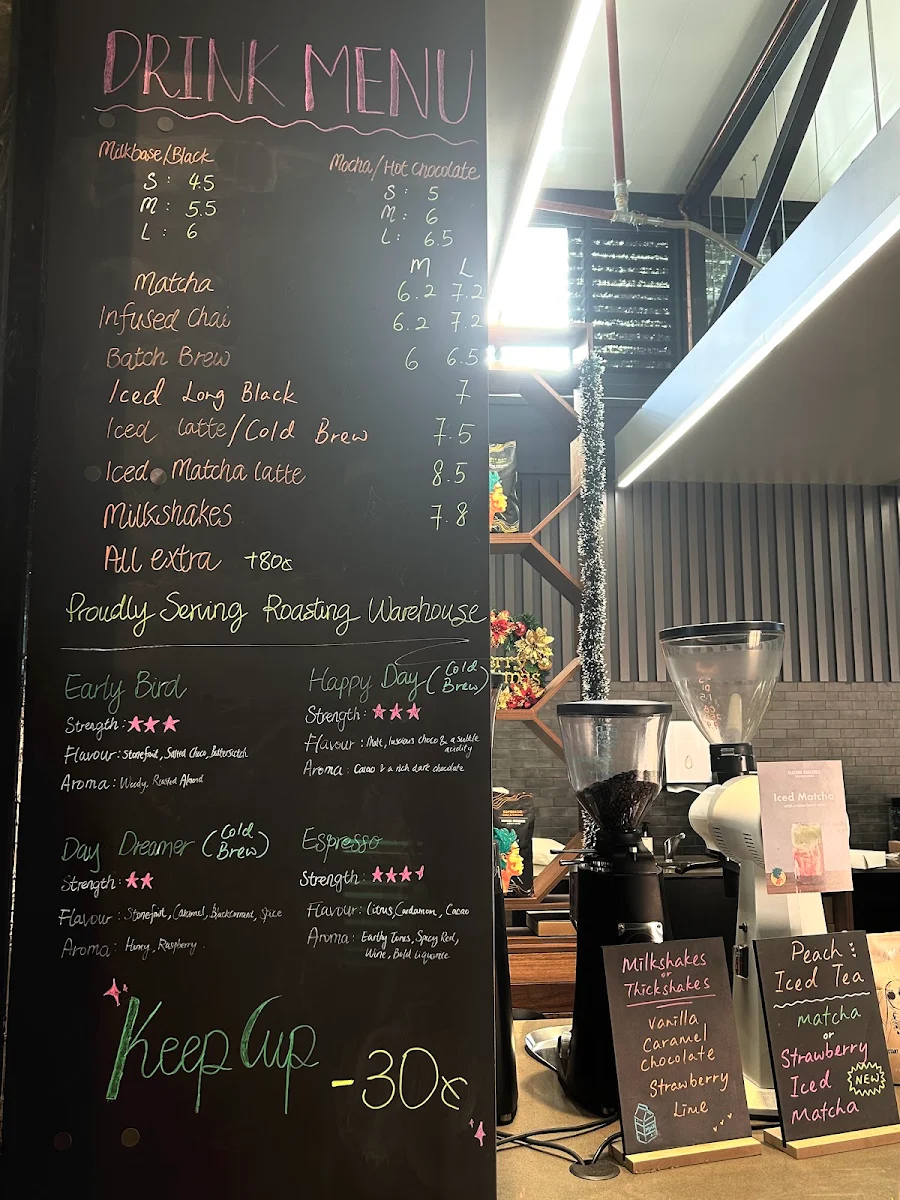 DRINK MENU
Milkbase/Black
S: 4.5
M: 5.5
L: 6
Mocha/Hot Chocolate
S: 5
M: 6
L: 6.5
M L
Matcha 6.2 7.2
Infused Chai 6.2 7.2
Batch Brew 6 6.5
Iced Long Black 7
Iced latte/Cold Brew 7.5
Iced Matcha latte 8.5
Milkshakes 7.8
All extra +80c
Proudly Serving Roasting Warehouse
Early Bird
Strength: ★★★
Flavour: Stonefruit, Salted Choco, Butterscotch
Aroma: Woody, Roasted Almond
Happy Day (Cold Brew)
Strength: ★★★
Flavour: Malt, luscious choco & a subtle
acidity
Aroma: Cacao & a rich dark chocolate
Day Dreamer (Cold Brew)
Strength: ★★
Flavour: Stonefruit, Caramel, Blackcurrant, Spice
Aroma: Honey, Raspberry
Espresso
Strength: ★★★
Flavour: Citrus, Cardamom, Cacao
Aroma: Earthy Tones, Spicy Red,
Wine, Bold Liquorice
Keep Cup -30c
Iced Matcha
Milkshakes
or
Thickshakes
Vanilla
Caramel
Chocolate
Strawberry
Lime
Peach
Iced Tea
matcha
or
Strawberry
Iced
Matcha
NEW